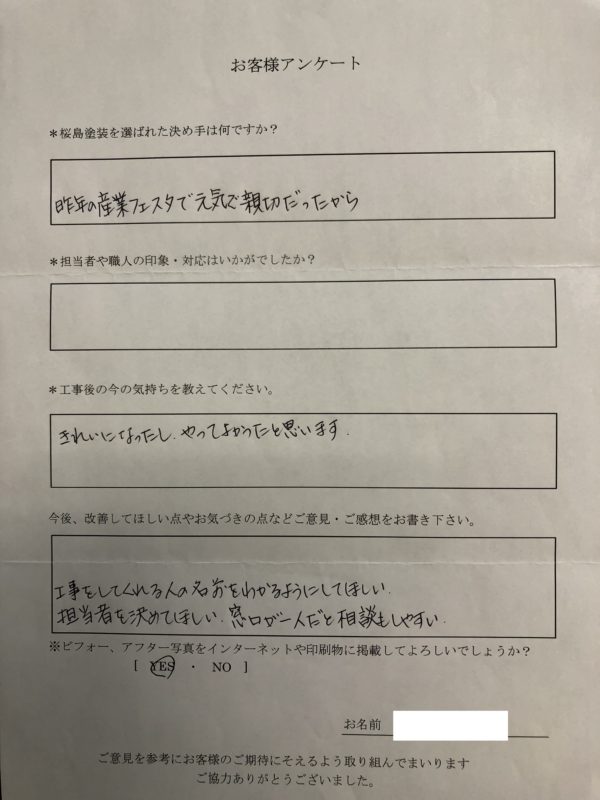 お客様アンケート
＊桜島塗装を選ばれた決め手は何ですか？
昨年の産業フェスタで元気で親切だったから
＊担当者や職人の印象・対応はいかがでしたか？
＊工事後の今の気持ちを教えてください。
きれいになったし、やってよかったと思います．
今後、改善してほしい点やお気づきの点などご意見・ご感想をお書き下さい。
工事をしてくれる人の名前をわかるようにしてほしい．
担当者を決めてほしい．窓口が一人だと相談もしやすい．
※ビフォー、アフター写真をインターネットや印刷物に掲載してよろしいでしょうか？
[ YES ・ NO ]
お名前
ご意見を参考にお客様のご期待にそえるよう取り組んでまいります
ご協力ありがとうございました。